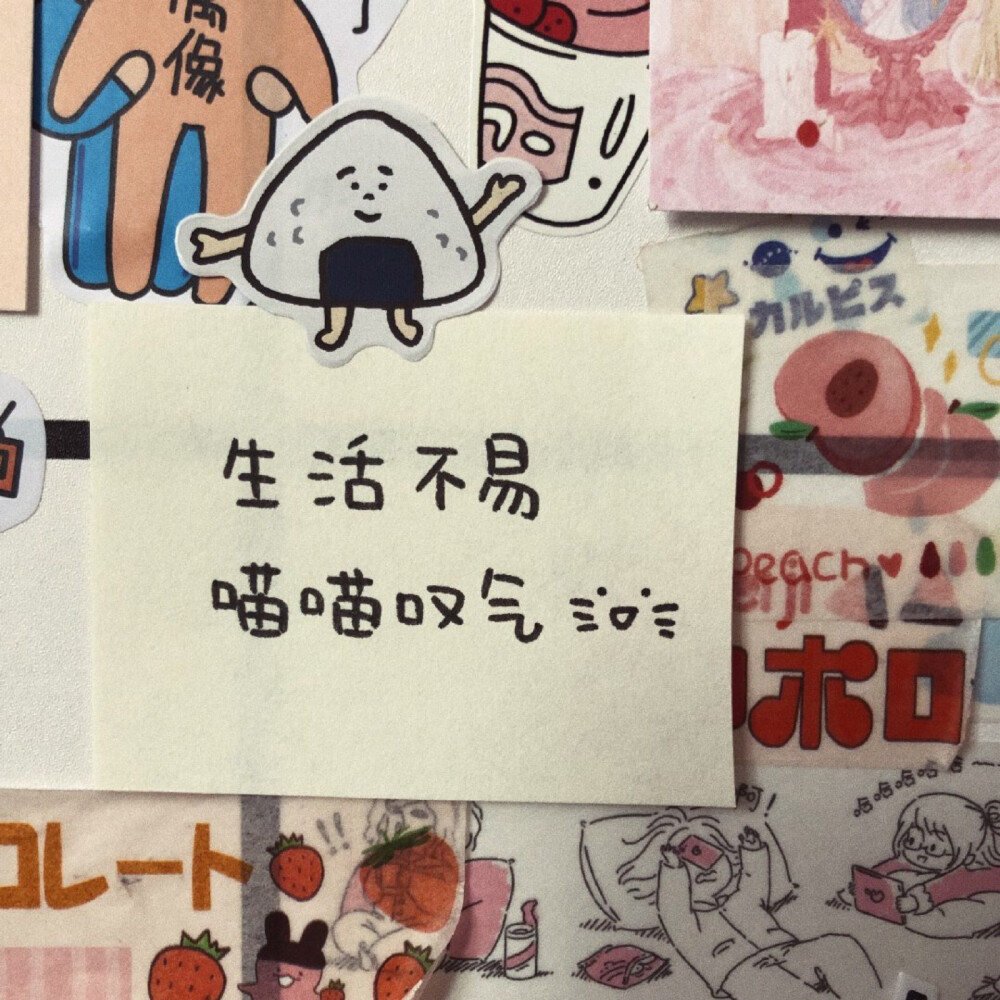 偶像
カルピス
生活不易
喵喵叹气
peach
meiji
ポロ
コレート
哈哈哈哈